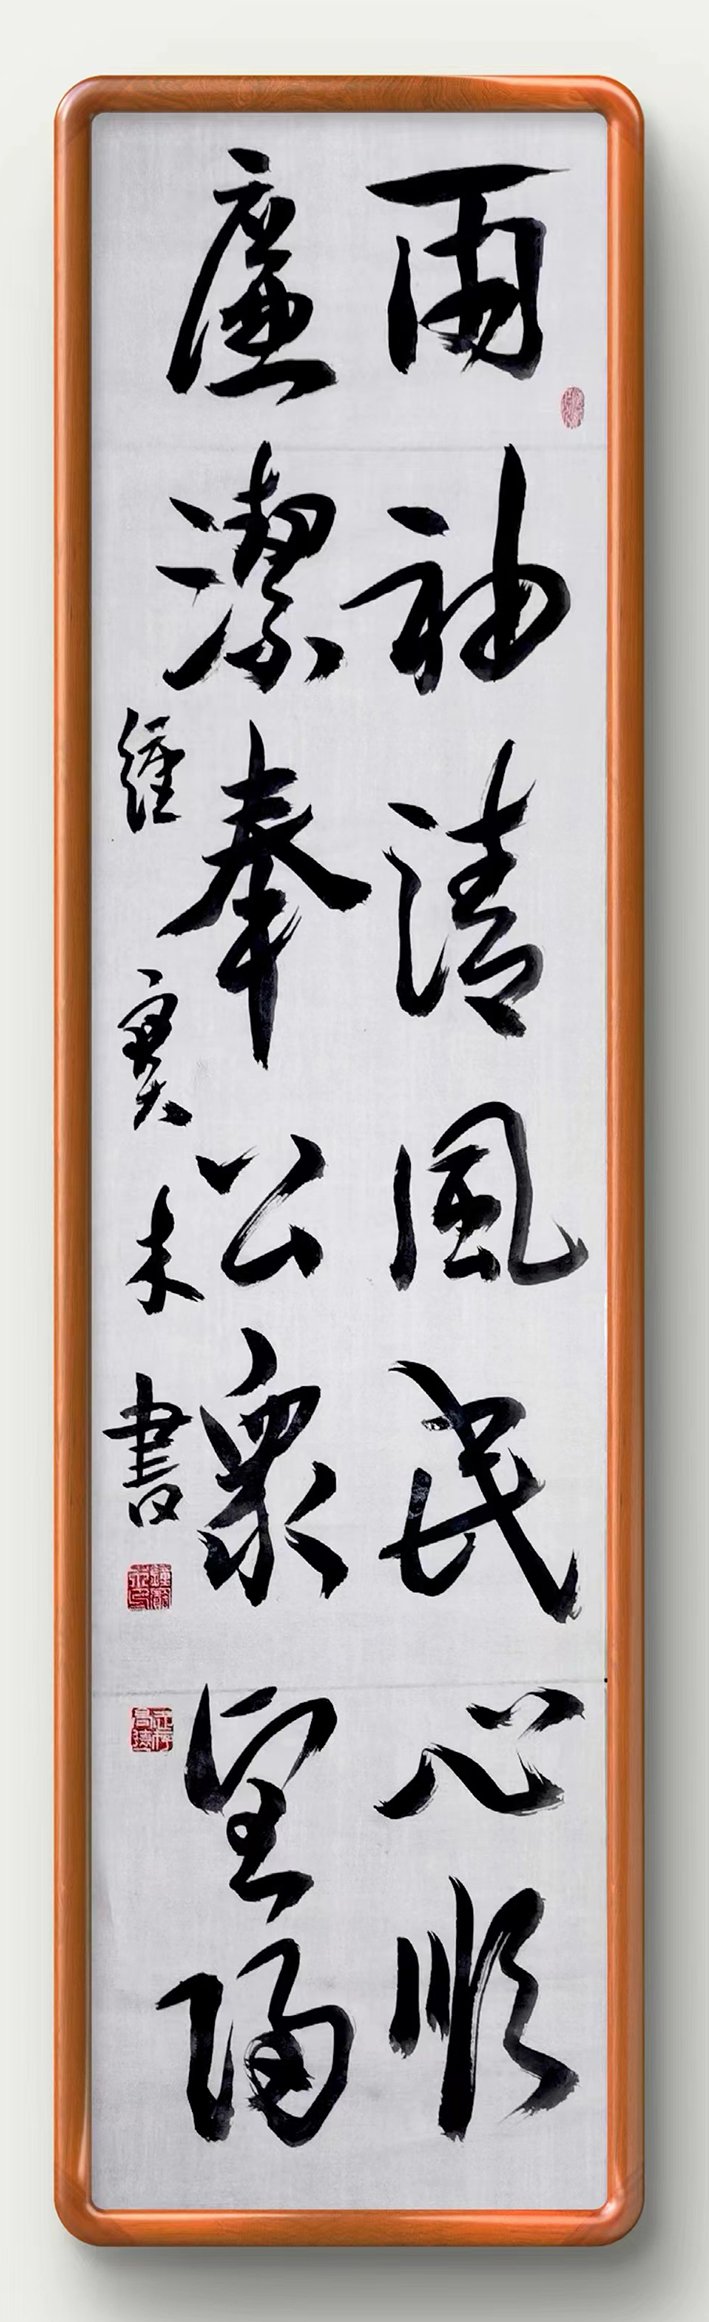 兩袖清風民心順
廉潔奉公衆望歸
書